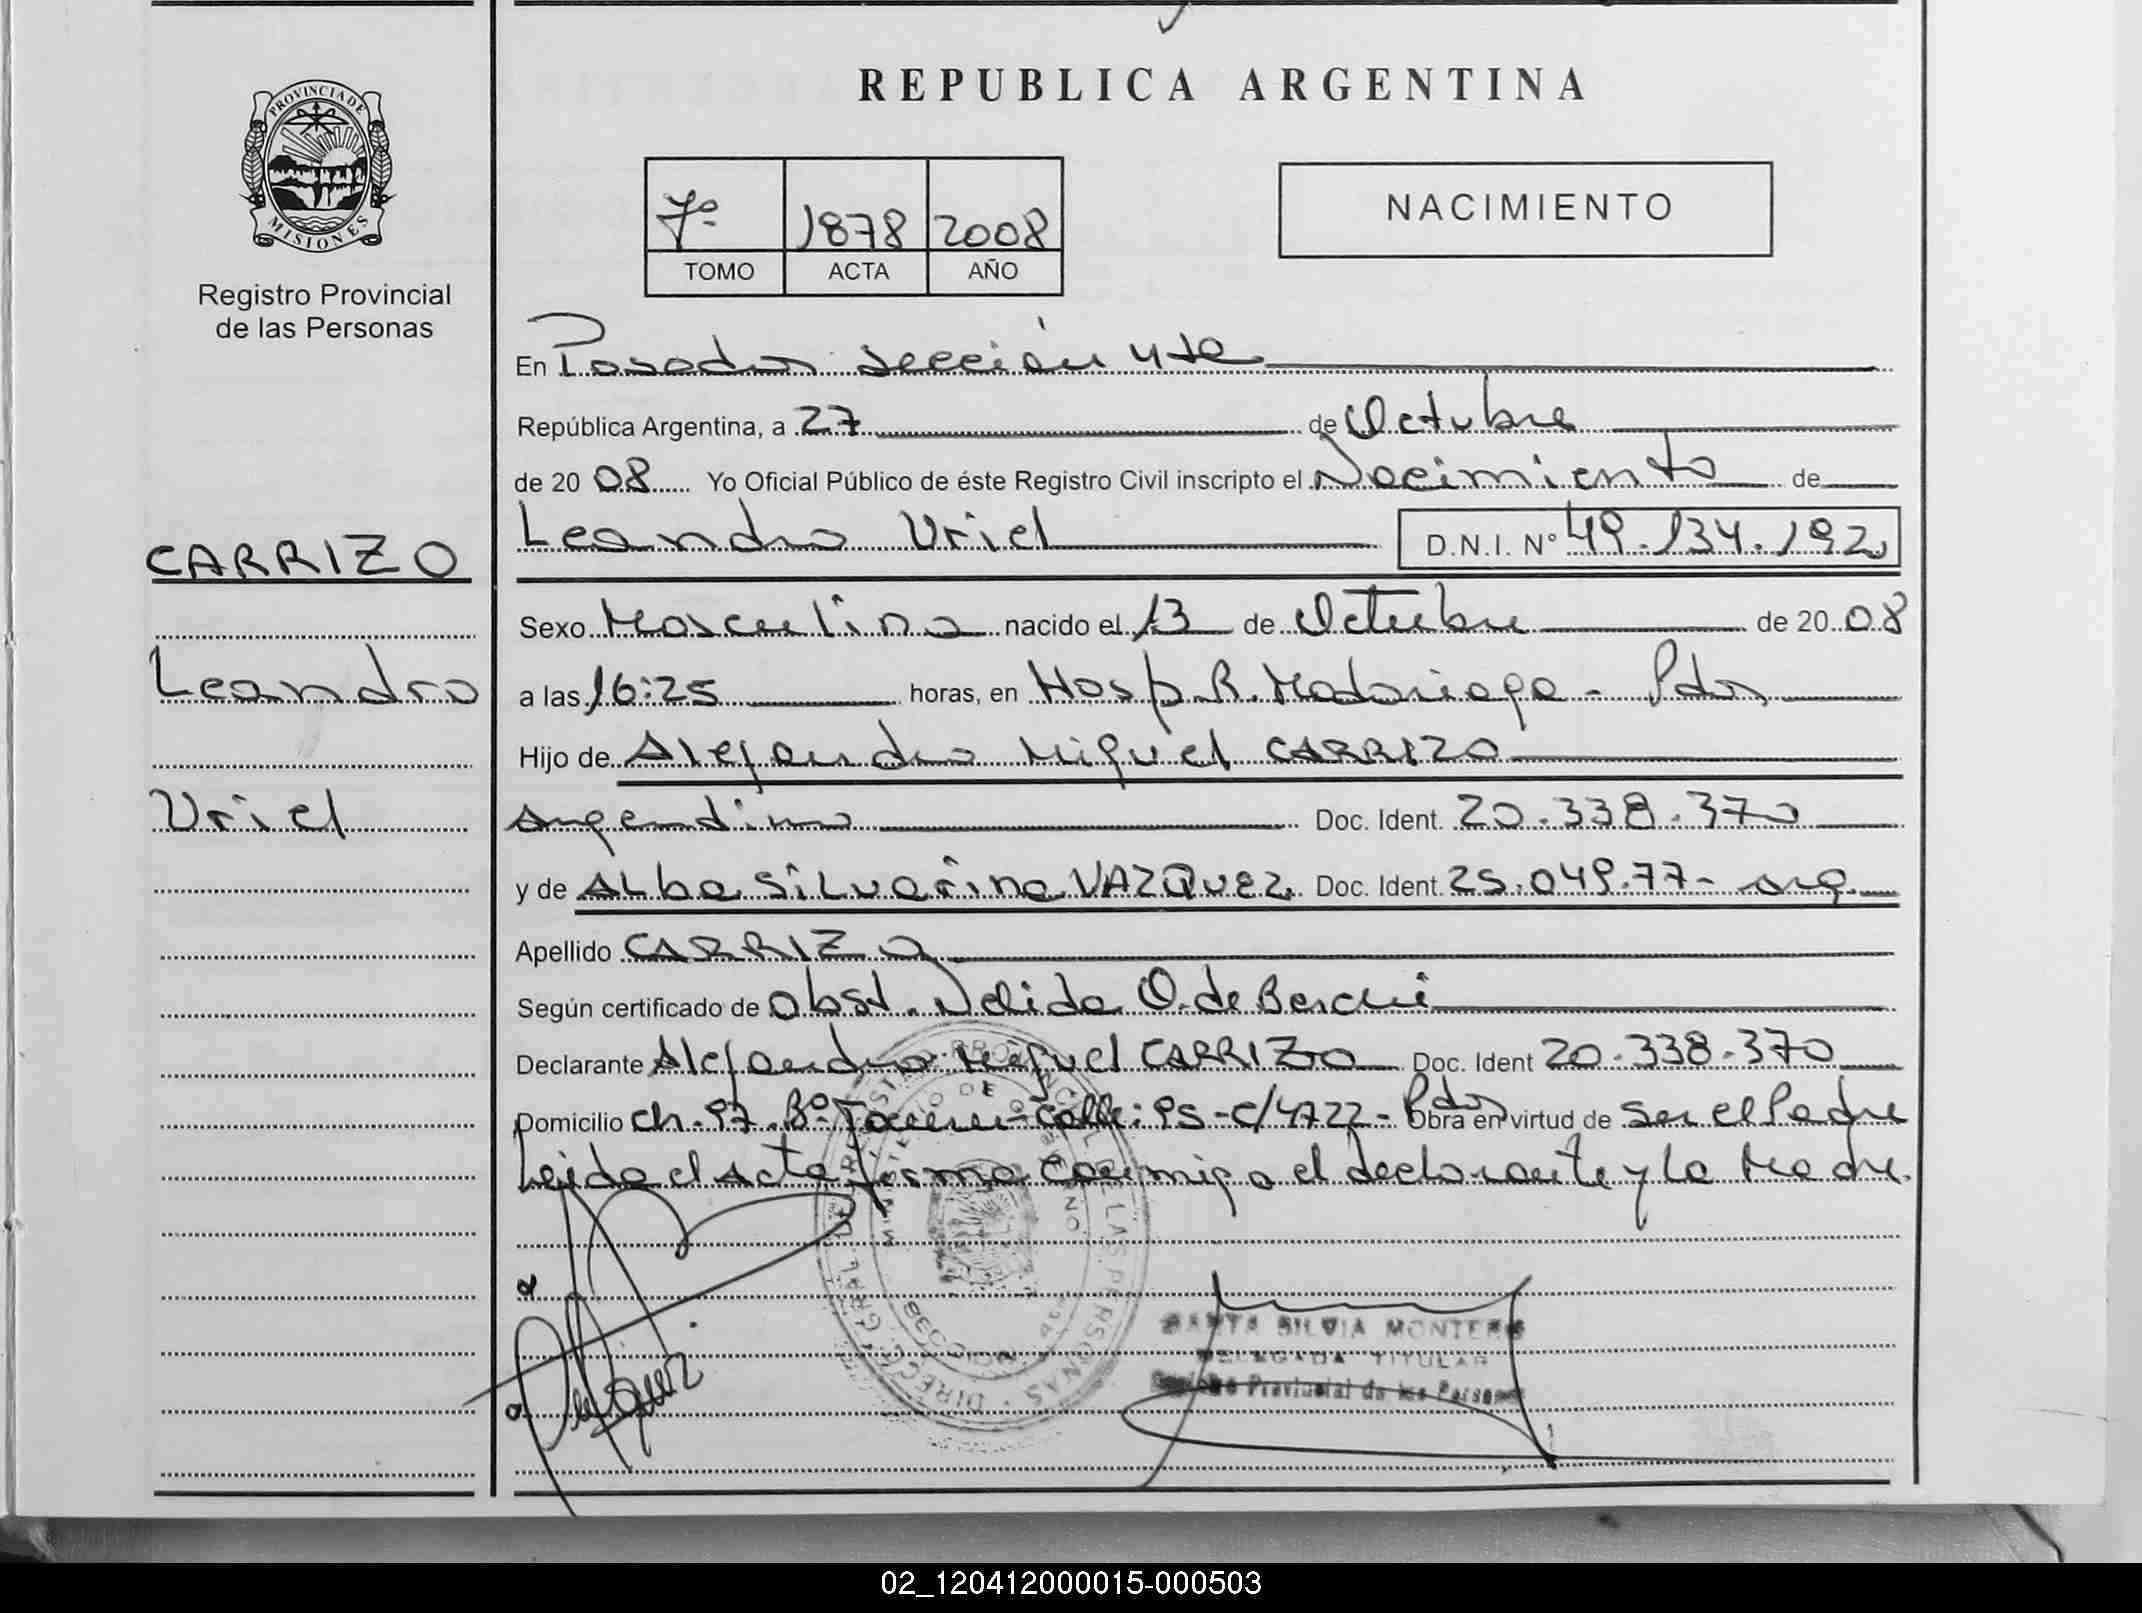 REPUBLICA ARGENTINA
PROVINCIA DE
MISIONES
Registro Provincial
de las Personas
7º 1878 2008
TOMO ACTA AÑO
NACIMIENTO
En Posadas sección 4ta
República Argentina, a 27 de Octubre
de 2008 Yo Oficial Público de éste Registro Civil inscripto el Nacimiento de
Leandro Uriel D.N.I. Nº 49.134.192
CARRIZO
Leandro
Uriel
Sexo Masculino nacido el 13 de Octubre de 2008
a las 16:25 horas, en Hosp. R. Madariaga - Pdas
Hijo de Alejandro Miguel CARRIZO
Argentino Doc. Ident. 20.338.370
y de ALba SiLvarina VAZQUEZ. Doc. Ident. 25.049.77- arg.
Apellido CARRIZO
Según certificado de Obst. Nelida O. de
Declarante Alejandro Miguel CARRIZO Doc. Ident 20.338.370
Domicilio Ch. 97. Bº Calle: 95 - C/4722 - Pdas Obra en virtud de Ser el Padre
Leida el Acta firma conmigo el declarante y la Madre.
SILVIA MONTERO
DELEGADA TITULAR
Registro Provincial de las Personas
02_120412000015-000503